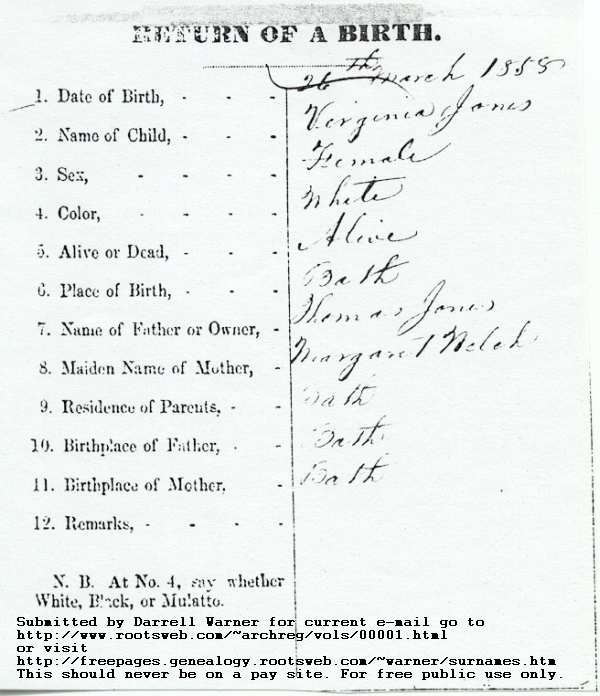 RETURN OF A BIRTH.
1. Date of Birth, - - - 26th March 1858
2. Name of Child, - - - Virginia Jones
3. Sex, - - - - Female
4. Color, - - - - White
5. Alive or Dead, - - - Alive
6. Place of Birth, - - - Bath
7. Name of Father or Owner, - Thomas Jones
8. Maiden Name of Mother, - Margaret Welch
9. Residence of Parents, - - Bath
10. Birthplace of Father, - - Bath
11. Birthplace of Mother, - Bath
12. Remarks, - - - -
N. B. At No. 4, say whether
White, Black, or Mulatto.
Submitted by Darrell Warner for current e-mail go to
http://www.rootsweb.com/~archreg/vols/00001.html
or visit
http://freepages.genealogy.rootsweb.com/~warner/surnames.htm
This should never be on a pay site. For free public use only.